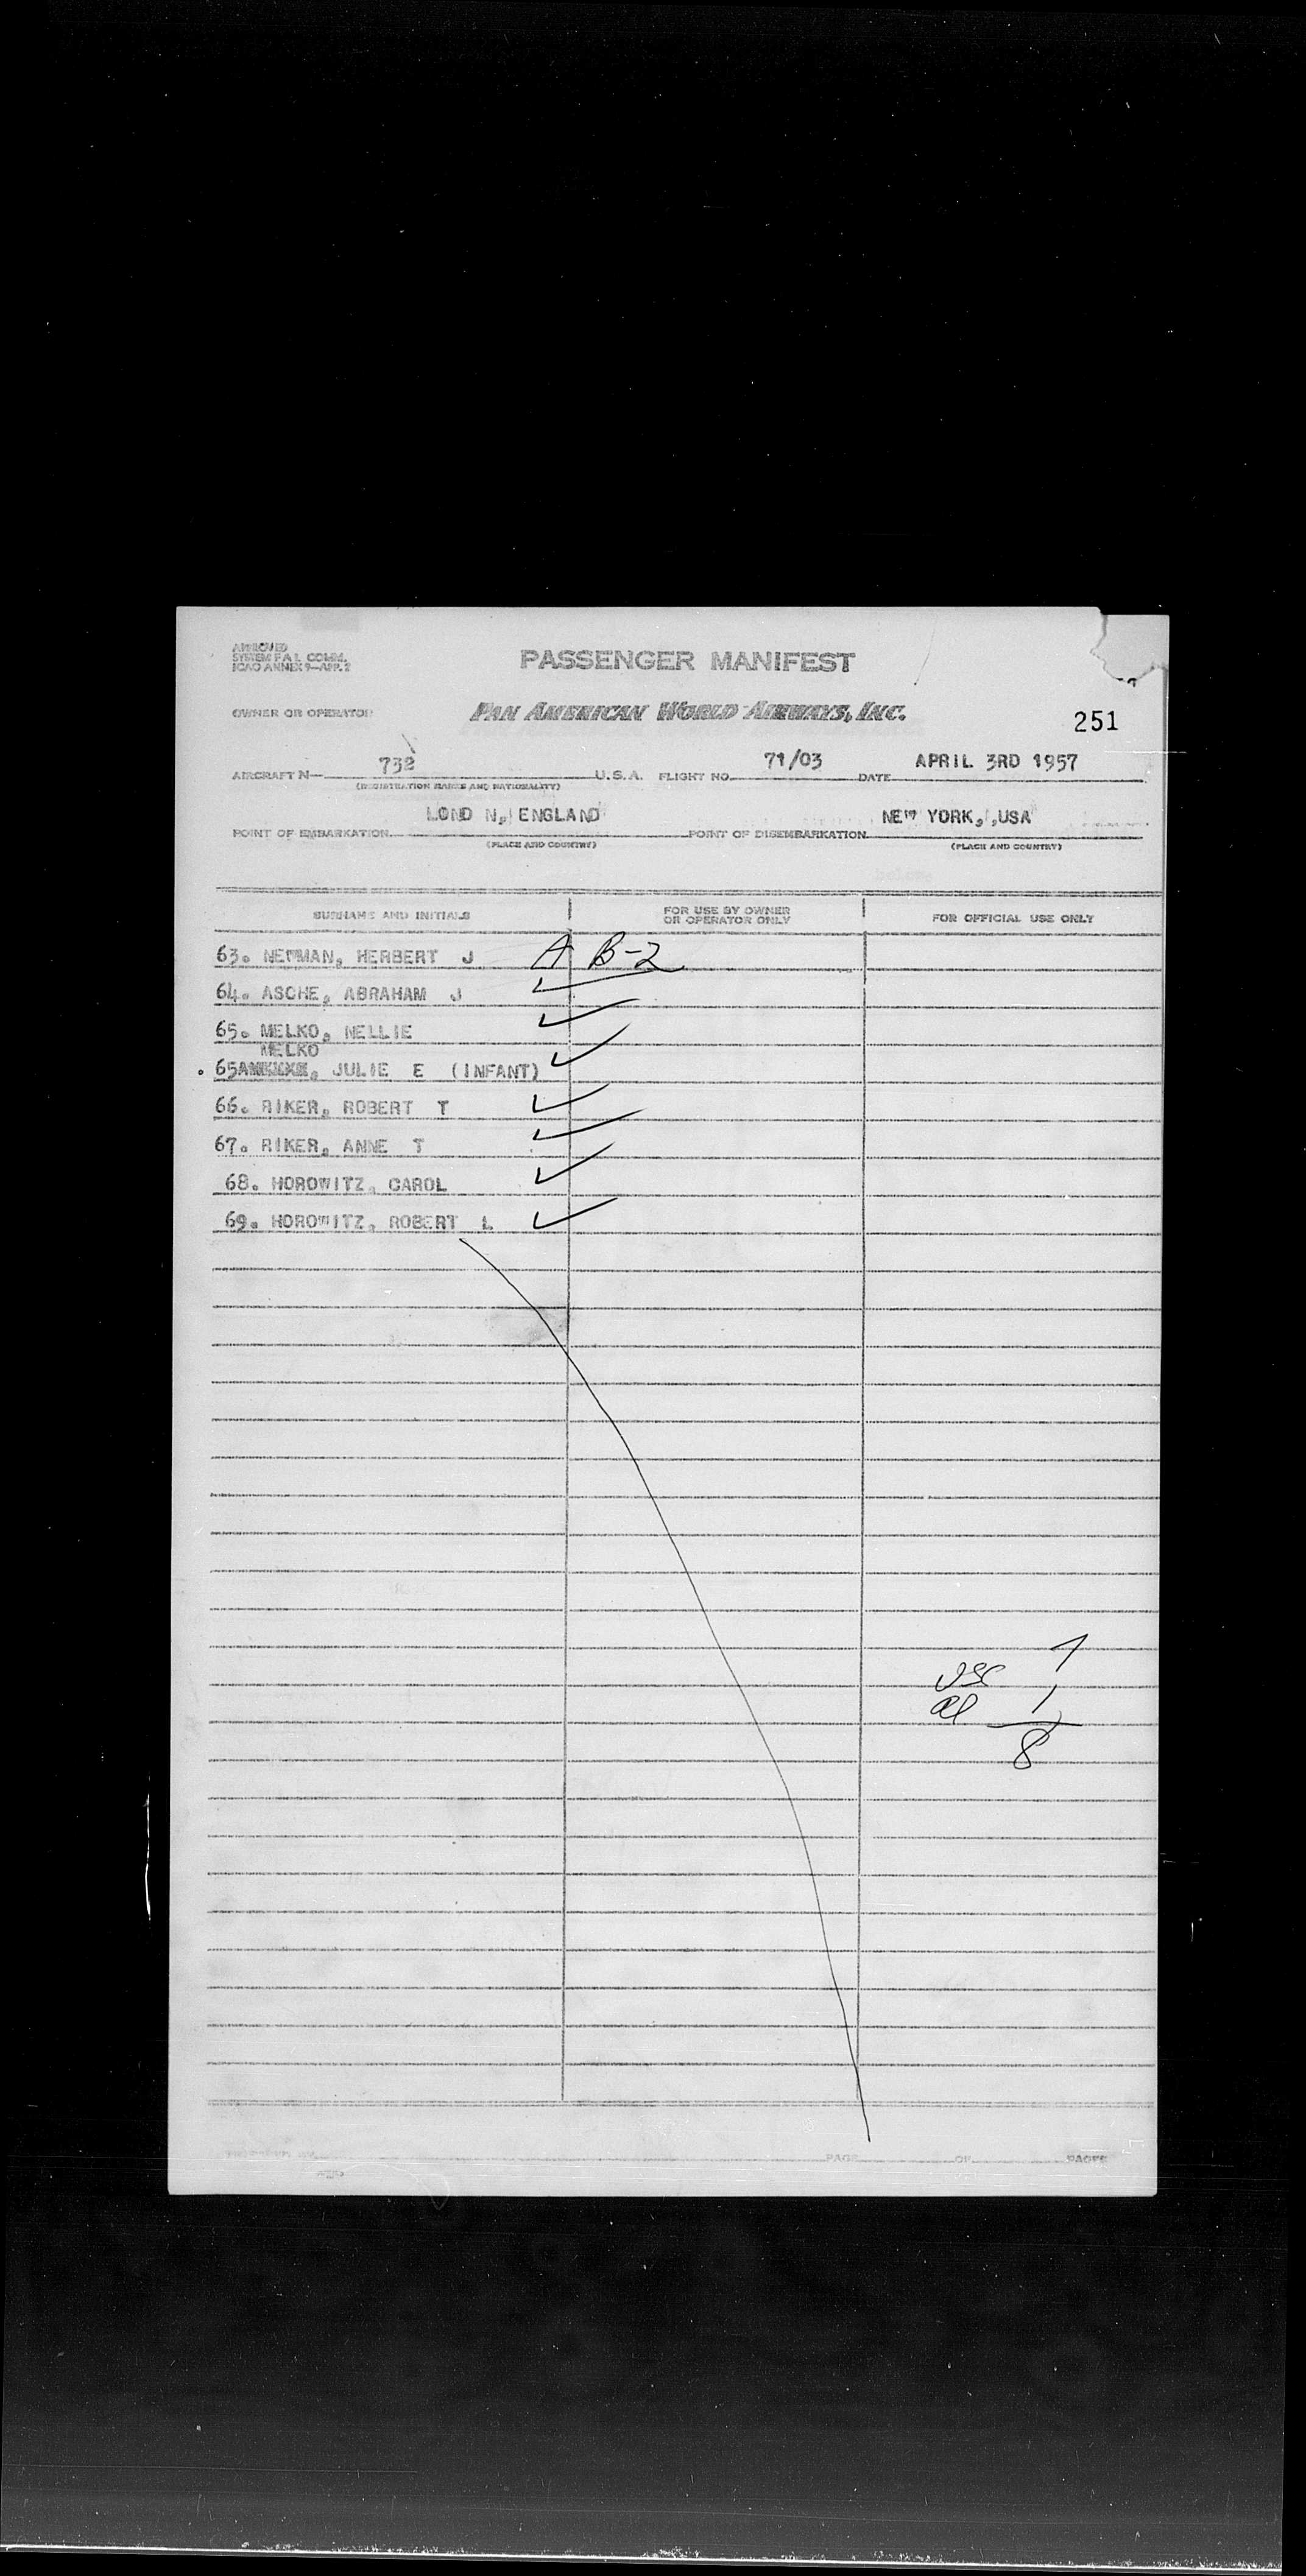 APPROVED
SYSTEM P.A.L. COMM.
ICAO ANNEX 9—APP. 2
PASSENGER MANIFEST
OWNER OR OPERATOR
PAN AMERICAN WORLD AIRWAYS, INC.
251
AIRCRAFT N— 732 U.S.A. FLIGHT NO. 71/03 DATE APRIL 3RD 1957
(REGISTRATION MARKS AND NATIONALITY)
POINT OF EMBARKATION LOND N, ENGLAND POINT OF DISEMBARKATION NEW YORK, ,USA
(PLACE AND COUNTRY) (PLACE AND COUNTRY)
SURNAME AND INITIALS FOR USE BY OWNER OR OPERATOR ONLY FOR OFFICIAL USE ONLY
63. NEWMAN, HERBERT J A B-2
64. ASCHE, ABRAHAM J
65. MELKO, NELLIE
MELKO
65A , JULIE E (INFANT)
66. RIKER, ROBERT T
67. RIKER, ANNE T
68. HOROWITZ, CAROL
69. HOROWITZ, ROBERT L
USC 7
al 1
8
PAGE OF PAGES